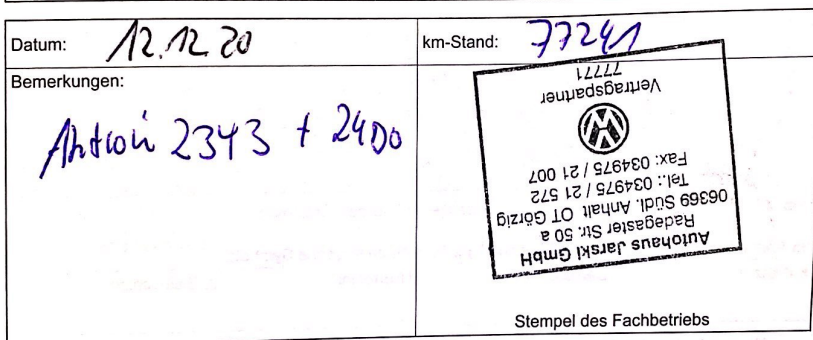 Datum: 12.12.20
km-Stand: 77241
Bemerkungen:
Aktion 2343 + 2400
Autohaus Jarski GmbH
Radegaster Str. 50 a
06369 Südl. Anhalt OT Görzig
Tel.: 034975 / 21 572
Fax: 034975 / 21 007
VW
Vertragspartner
77771
Stempel des Fachbetriebs